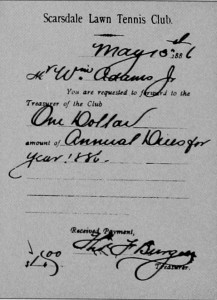 Scarsdale Lawn Tennis Club.
May 15th 1886
Mr Wm Adams Jr
You are requested to forward to the
Treasurer of the Club
One Dollar
amount of Annual Dues for
year 1886.
Received Payment,
Thos F Burgess
$1.00
Treasurer.